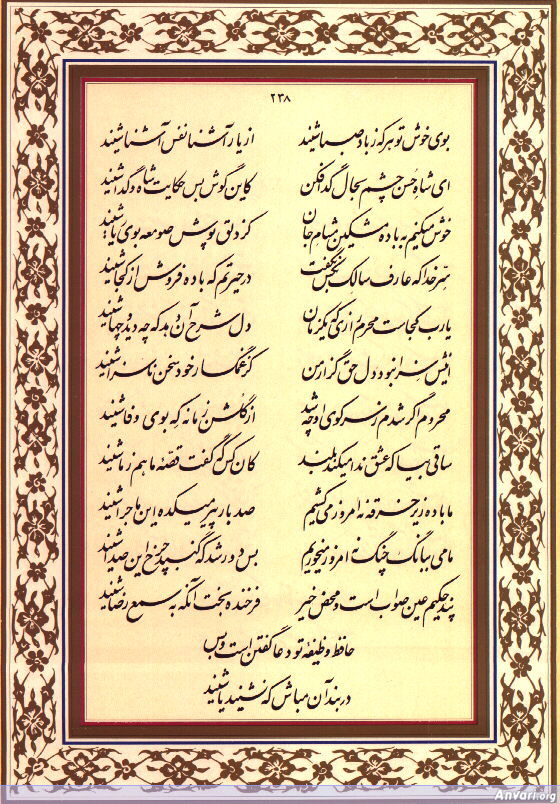 ۲۳۸
بوی خوش تو هر که ز باد صبا شنید از یار آشنا نفس آشنا شنید
ای شاه حسن چشم بحال گدا فکن کاین گوش بس حکایت شاه و گدا شنید
خوش میکنم به باده مشکین مشام جان کز دلق پوش صومعه بوی ریا شنید
سر خدا که عارف سالک بکس نگفت در حیرتم که باده فروش از کجا شنید
یارب کجاست محرم رازی که یکزمان دل شرح آن دهد که چه دید و چها شنید
اینش سزا نبود دل حق گزار من کز غمگسار خود سخن ناسزا شنید
محروم اگر شدم ز سر کوی او چه شد از گلشن زمانه که بوی وفا شنید
ساقی بیا که عشق ندا میکند بلند کان کس که گفت قصه ما هم ز ما شنید
ما باده زیر خرقه نه امروز می کشیم صد بار پیر میکده این ماجرا شنید
ما می ببانگ چنگ نه امروز میخوریم بس دور شد که گنبد چرخ این صدا شنید
پند حکیم عین صواب است و محض خیر فرخنده بخت آنکه به سمع رضا شنید
حافظ وظیفه تو دعا گفتن است و بس
در بند آن مباش که نشنید یا شنید
Anvari.org